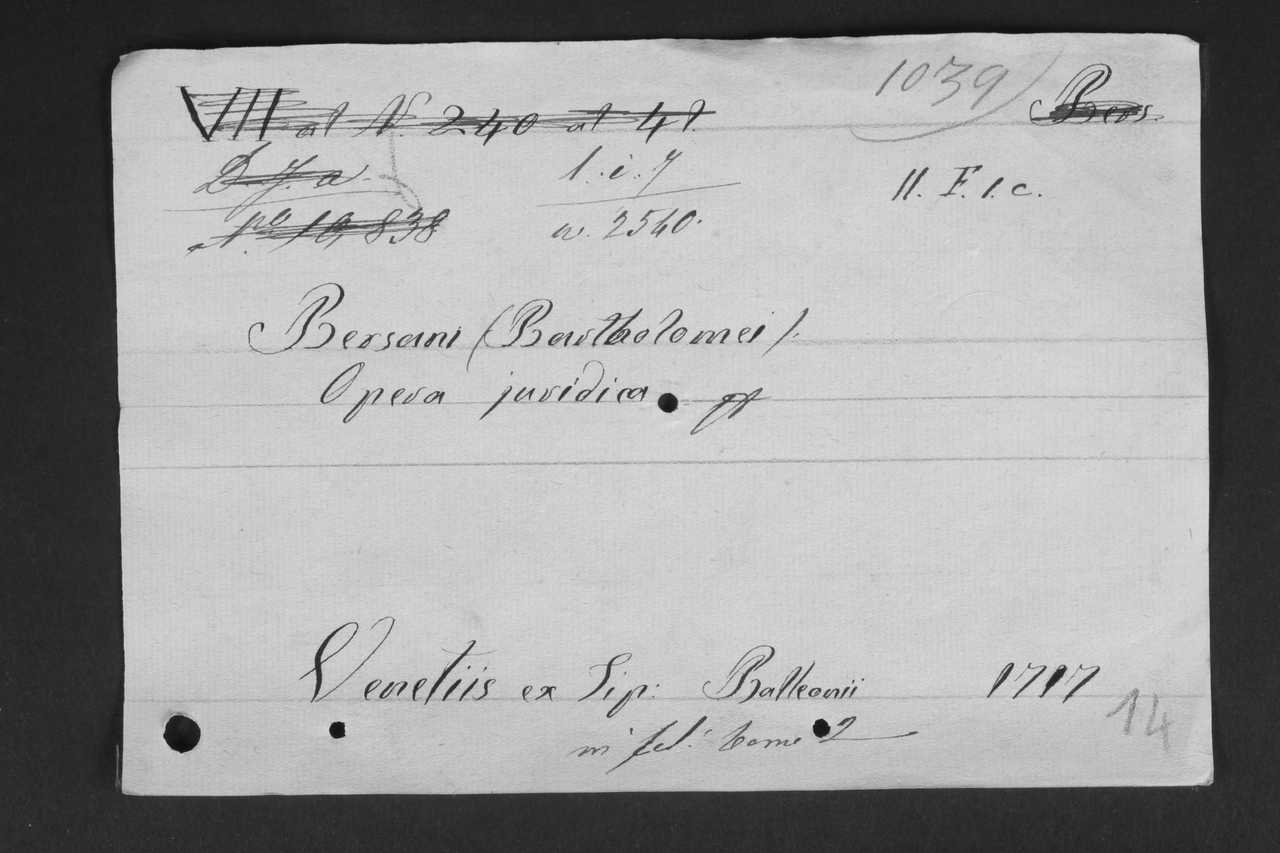 1039
VIII at N. 240 at 41.
Bers.
D. J. a.
1. i. 7
II. F. 1. c.
No 10,838
a. 2540.
Bersani (Bartholomei).
Opera juridica
Venetiis ex Tip: Balleonii 1717
in fol: tom 2
14